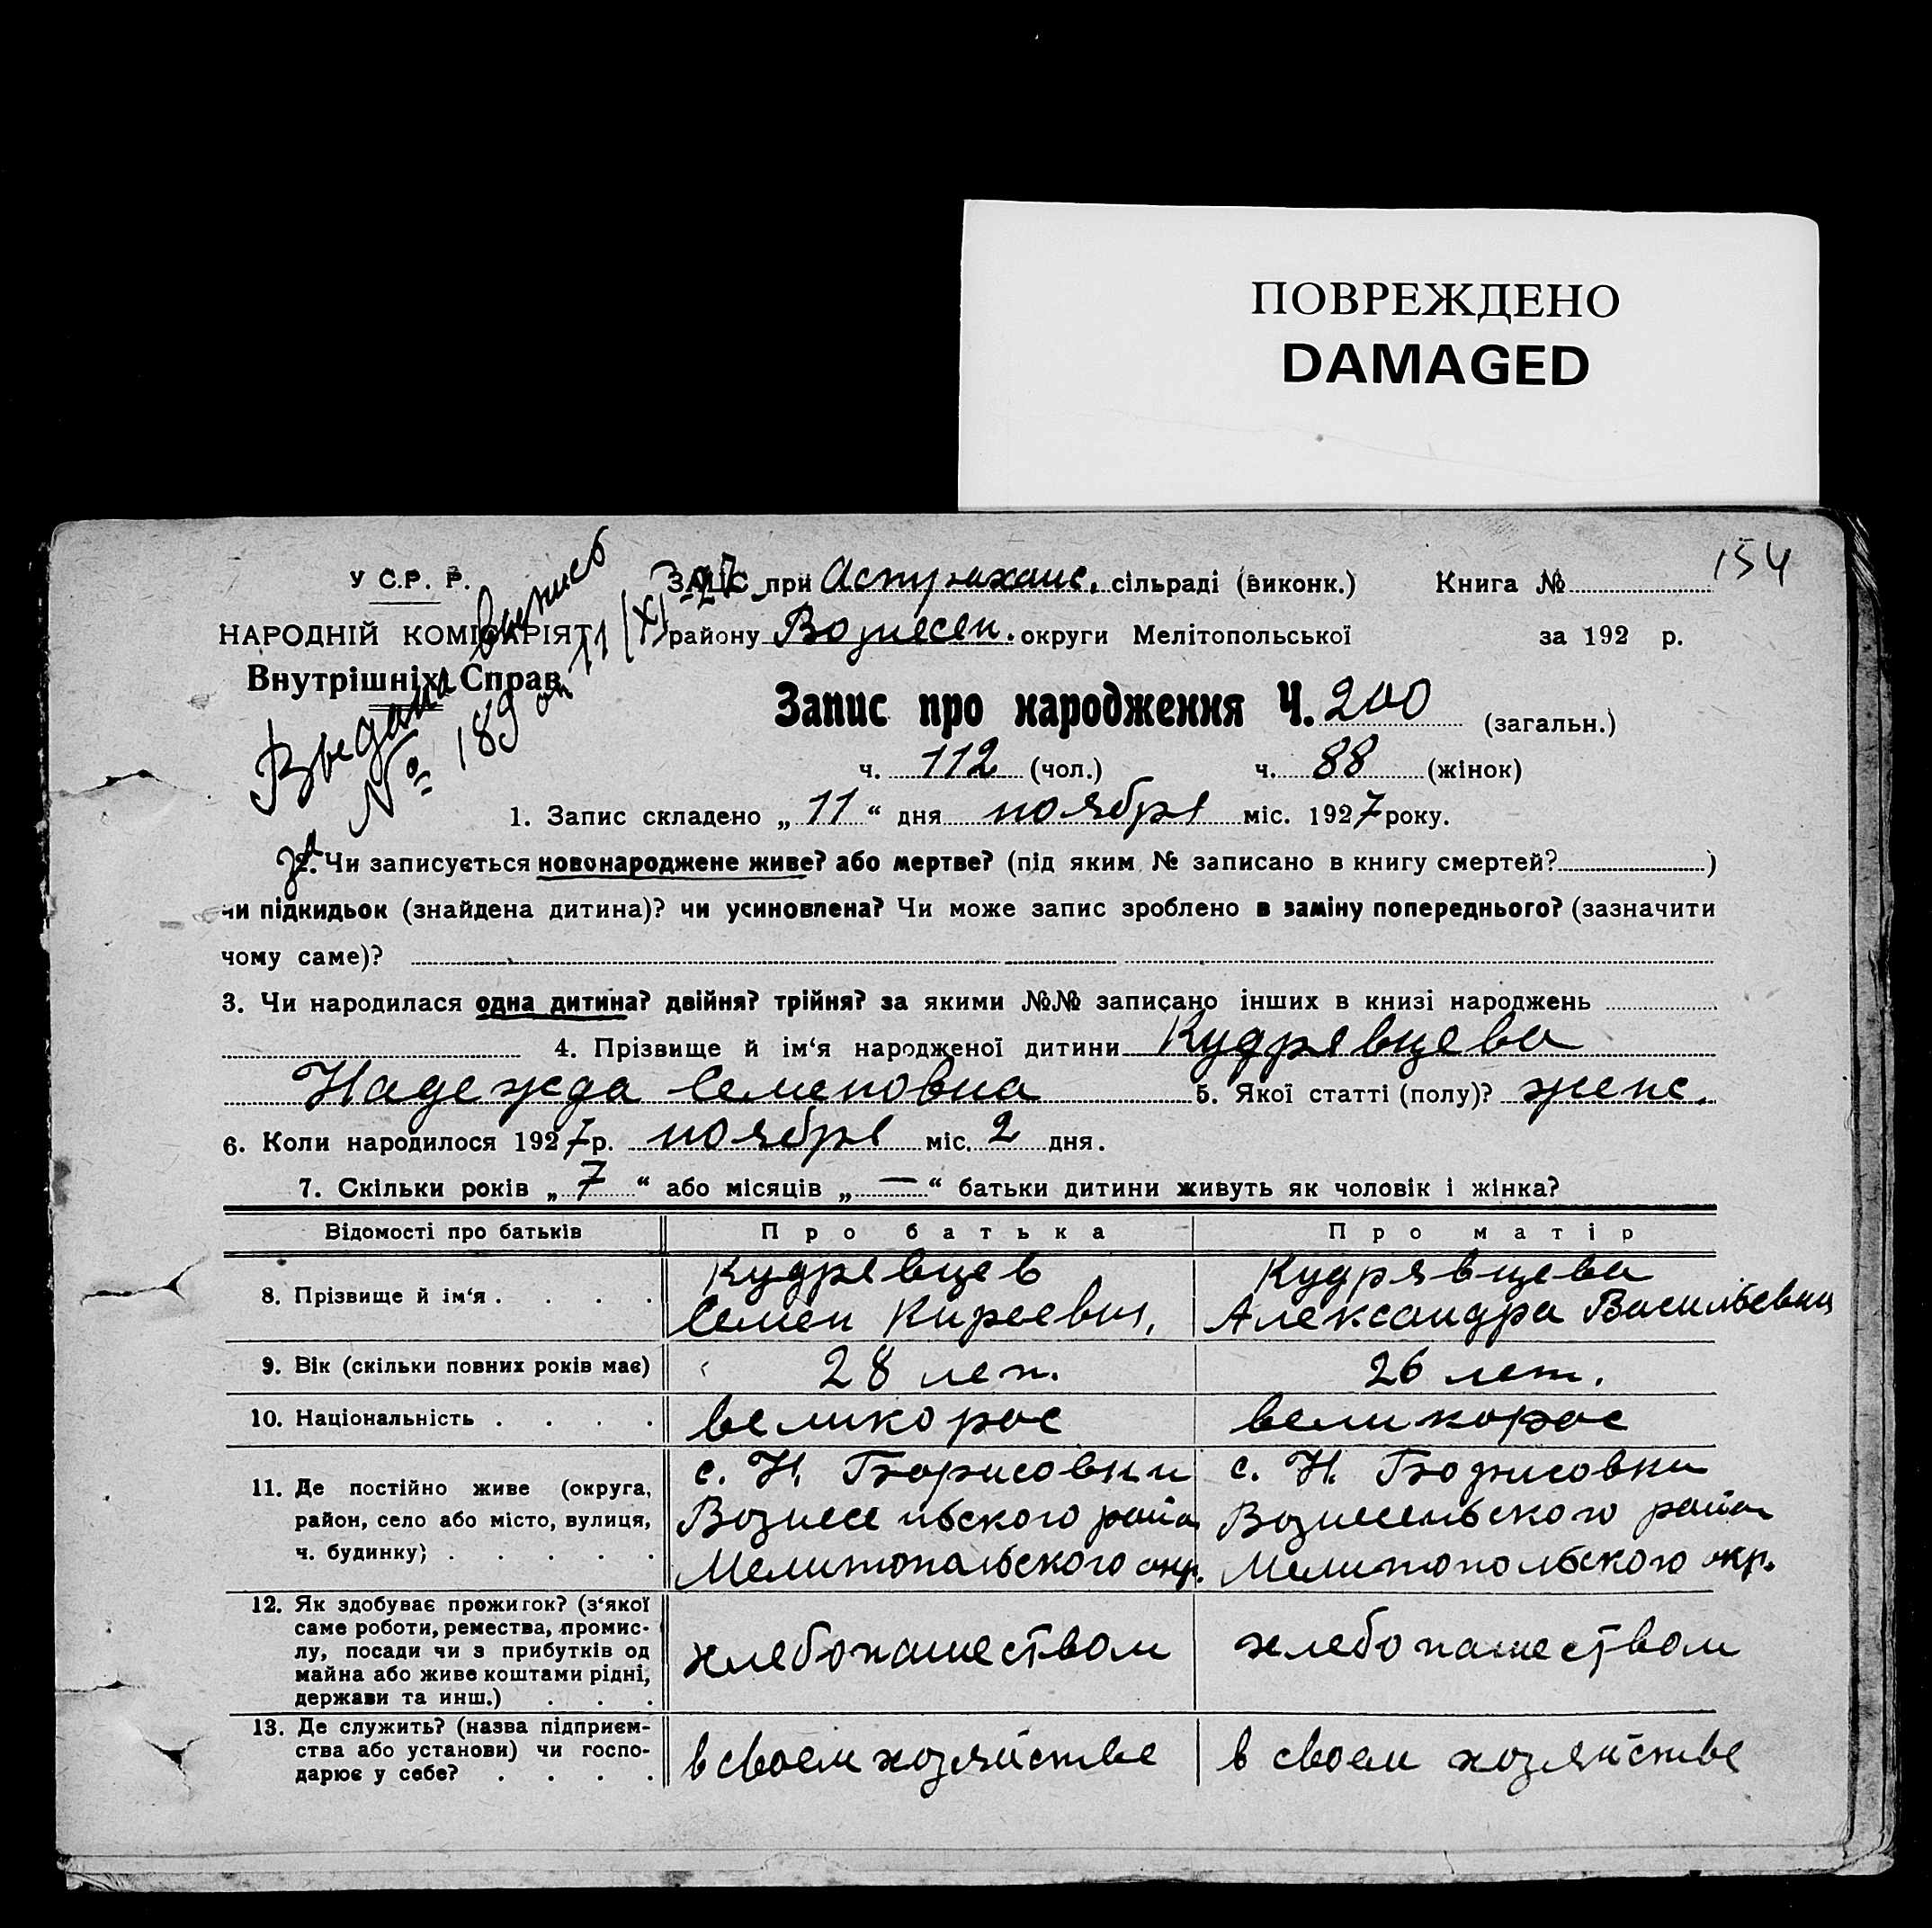 ПОВРЕЖДЕНО
DAMAGED
154
У С.Р. Р.
НАРОДНІЙ КОМІСАРІЯТ
Внутрішніх Справ
Выдана выпись
№ 189 от 11/XI-27
ЗАГС при Астраханс. сільраді (виконк.) Книга №
району Вознесен. округи Мелітопольської за 192 р.
Запис про народження Ч. 200 (загальн.)
ч. 112 (чол.) ч. 88 (жінок)
1. Запис складено „ 11 “ дня ноября міс. 1927 року.
Чи записується новонароджене живе? або мертве? (під яким № записано в книгу смертей? )
чи підкидьок (знайдена дитина)? чи усиновлена? Чи може запис зроблено в заміну попереднього? (зазначити
чому саме)?
3. Чи народилася одна дитина? двійня? трійня? за якими №№ записано інших в книзі народжень
4. Прізвище й ім‘я народженої дитини Кудрявцева
Надежда Семеновна 5. Якої статті (полу)? женс.
6. Коли народилося 1927 р. ноября міс. 2 дня.
7. Скільки років „ 7 “ або місяців „ — “ батьки дитини живуть як чоловік і жінка?
Відомості про батьків Про батька Про матір
8. Прізвище й ім‘я . . . . Кудрявцев Кудрявцева
Семен Киреевич, Александра Васильевна
9. Вік (скільки повних років має) 28 лет. 26 лет.
10. Національність . . . . великорос великорос
11. Де постійно живе (округа, с. Н. Борисовки с. Н. Борисовки
район, село або місто, вулиця, Вознесеньского района Вознесеньского района
ч. будинку) . . . . . Мелитопольского окр. Мелитопольского окр.
12. Як здобуває прожиток? (з‘якої
саме роботи, ремества, промис-
лу, посади чи з прибутків од хлебопашеством хлебопашеством
майна або живе коштами рідні,
держави та инш.) . . .
13. Де служить? (назва підприєм-
ства або установи) чи госпо- в своем хозяйстве в своем хозяйстве
дарює у себе? . . . .